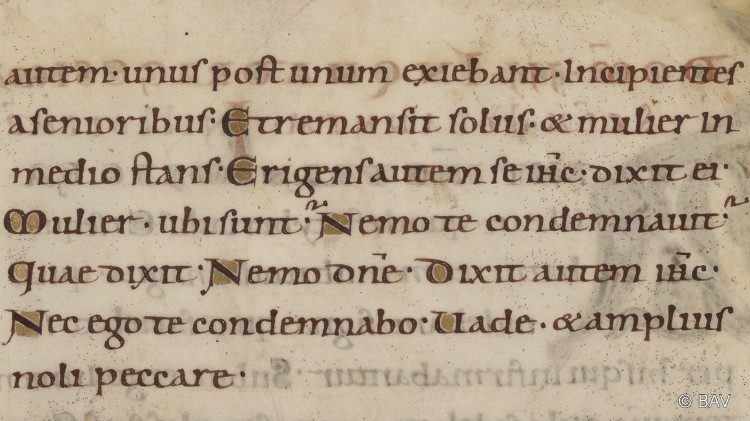 autem · unus post unum exiebant · Incipientes
asenioribus · Et remansit solus · & mulier in
medio stans · Erigens autem se ih̅c · dixit ei ·
Mulier · ubi sunt · Nemo te condemnauit ·
Quae dixit · Nemo dn̅e · Dixit autem ih̅c ·
Nec ego te condemnabo · Uade · & amplius
noli peccare ·
© BAV